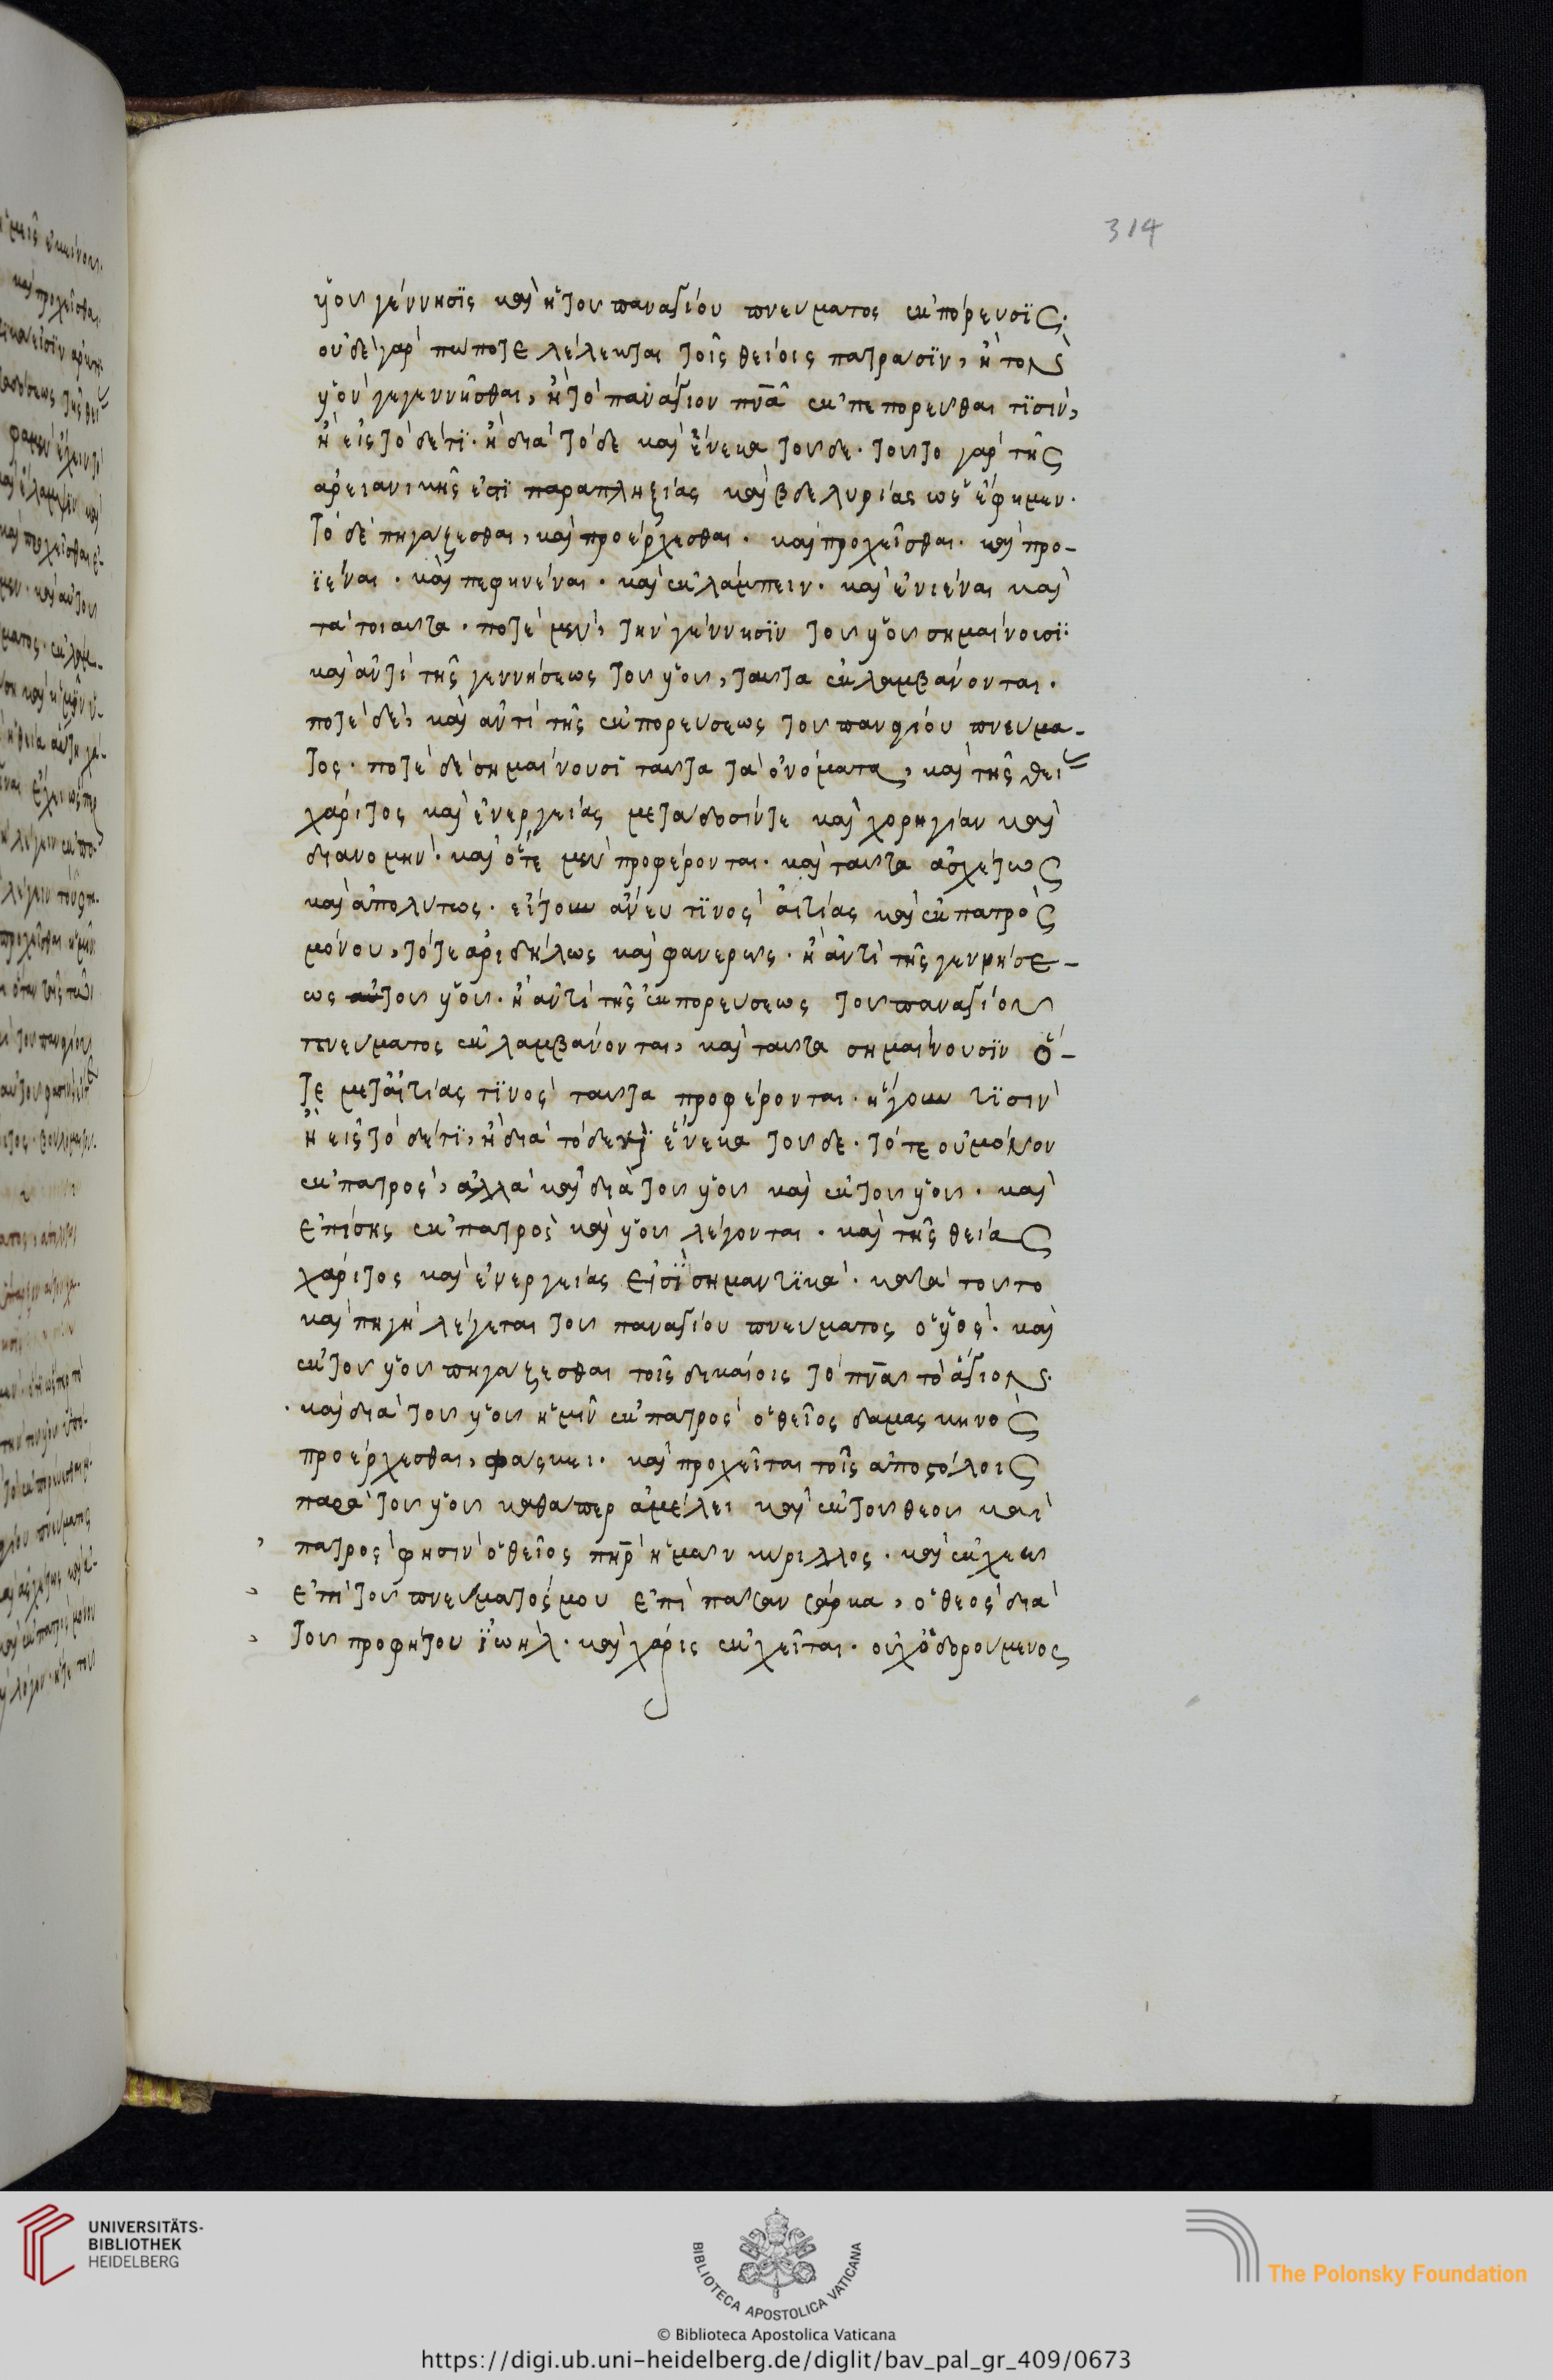 314
υἱοῦ γέννησϊς καὶ ἡ τοῦ παναγίου πνεύματος ἐκπόρευσϊς·
οὐδὲ γὰρ πώποτε λέλεκται τοῖς θείοις πατράσϊν, ἢ τὸν
υἱὸν γεγεννῆσθαι, ἢ τὸ πανάγιον πνᾶ ἐκπεπορεῦσθαι τϊσὶν,
ἢ εἰς τό δέ τϊ· ἢ διὰ τό δε καὶ ἕνεκα τοῦδε· τοῦτο γὰρ τῆς
ἀρειανικῆς ἐστϊ παραπληξίας καὶ βδελυρίας ὡς ἔφημεν·
τὸ δὲ πηγάζεσθαι, καὶ προέρχεσθαι· καὶ προχεῖσθαι· καὶ προ-
ϊέναι· καὶ πεφηνέναι· καὶ ἐκλάμπειν· καὶ ἐνιέναι καὶ
τὰ τοιαῦτα· ποτὲ μὲν, τὴν γέννησϊν τοῦ υἱοῦ σημαίνουσϊ·
καὶ ἀντὶ τῆς γεννήσεως τοῦ υἱοῦ, ταῦτα ἐκλαμβάνονται·
ποτὲ δὲ, καὶ ἀντὶ τῆς ἐκπορεύσεως τοῦ παναγίου πνεύμα-
τος· ποτὲ δὲ σημαίνουσϊ ταῦτα τὰ ὀνόματα, καὶ τῆς θεί
χάριτος καὶ ἐνεργείας μετάδοσίν τε καὶ χορηγίαν καὶ
διανομήν· καὶ ὅτε μὲν προφέρονται· καὶ ταῦτα ἀσχέτως
καὶ ἀπολύτως· εἴτουν ἄνευ τϊνὸς αἰτίας καὶ ἐκ πατρὸς
μόνου, τότε ἀριδήλως καὶ φανερῶς· ἢ ἀντὶ τῆς γεννήσε-
ως αὐτοῦ υἱοῦ· ἢ ἀντὶ τῆς ἐκπορεύσεως τοῦ παναγίου
πνεύματος ἐκλαμβάνονται, καὶ ταῦτα σημαίνουσϊν ὅ-
τε μετ αἰτίας τϊνὸς ταῦτα προφέρονται· ἤγουν τϊσὶν
ἢ εἰς τό δέ τϊ, ἢ διὰ τό δε καὶ ἕνεκα τοῦδε· τότε οὐ μόνον
ἐκ πατρὸς, ἀλλὰ καὶ διὰ τοῦ υἱοῦ καὶ ἐκ τοῦ υἱοῦ· καὶ
ἐπίσης ἐκ πατρὸς καὶ υἱοῦ λέγονται· καὶ τῆς θείας
χάριτος καὶ ἐνεργείας εἰσϊ σημαντϊκά· κατὰ τοῦτο
καὶ πηγὴ λέγεται τοῦ παναγίου πνεύματος ὁ υἱός· καὶ
ἐκ τοῦ υἱοῦ πηγάζεσθαι τοῖς δικαίοις τὸ πνᾶ τὸ ἅγιον·
καὶ διὰ τοῦ υἱοῦ ἡμῖν ἐκ πατρὸς ὁ θεῖος δαμασκηνὸς
προέρχεσθαι, φάσκει· καὶ προχεῖται τοῖς ἀποστόλοις
παρὰ τοῦ υἱοῦ καθάπερ ἀμέλει καὶ ἐκ τοῦ θεοῦ καὶ
πατρὸς φησὶν ὁ θεῖος πηρ ἡμῶν κύριλλος· καὶ ἐκχεῶ
ἐπὶ τοῦ πνεύματός μου ἐπὶ πᾶσαν σάρκα, ὁ θεὸς διὰ
τοῦ προφήτου ϊωήλ· καὶ χάρις ἐκχεῖται· οὐχ ὁ δωρούμενος
UNIVERSITÄTS-
BIBLIOTHEK
HEIDELBERG
BIBLIOTECA APOSTOLICA VATICANA
The Polonsky Foundation
© Biblioteca Apostolica Vaticana
https://digi.ub.uni-heidelberg.de/diglit/bav_pal_gr_409/0673